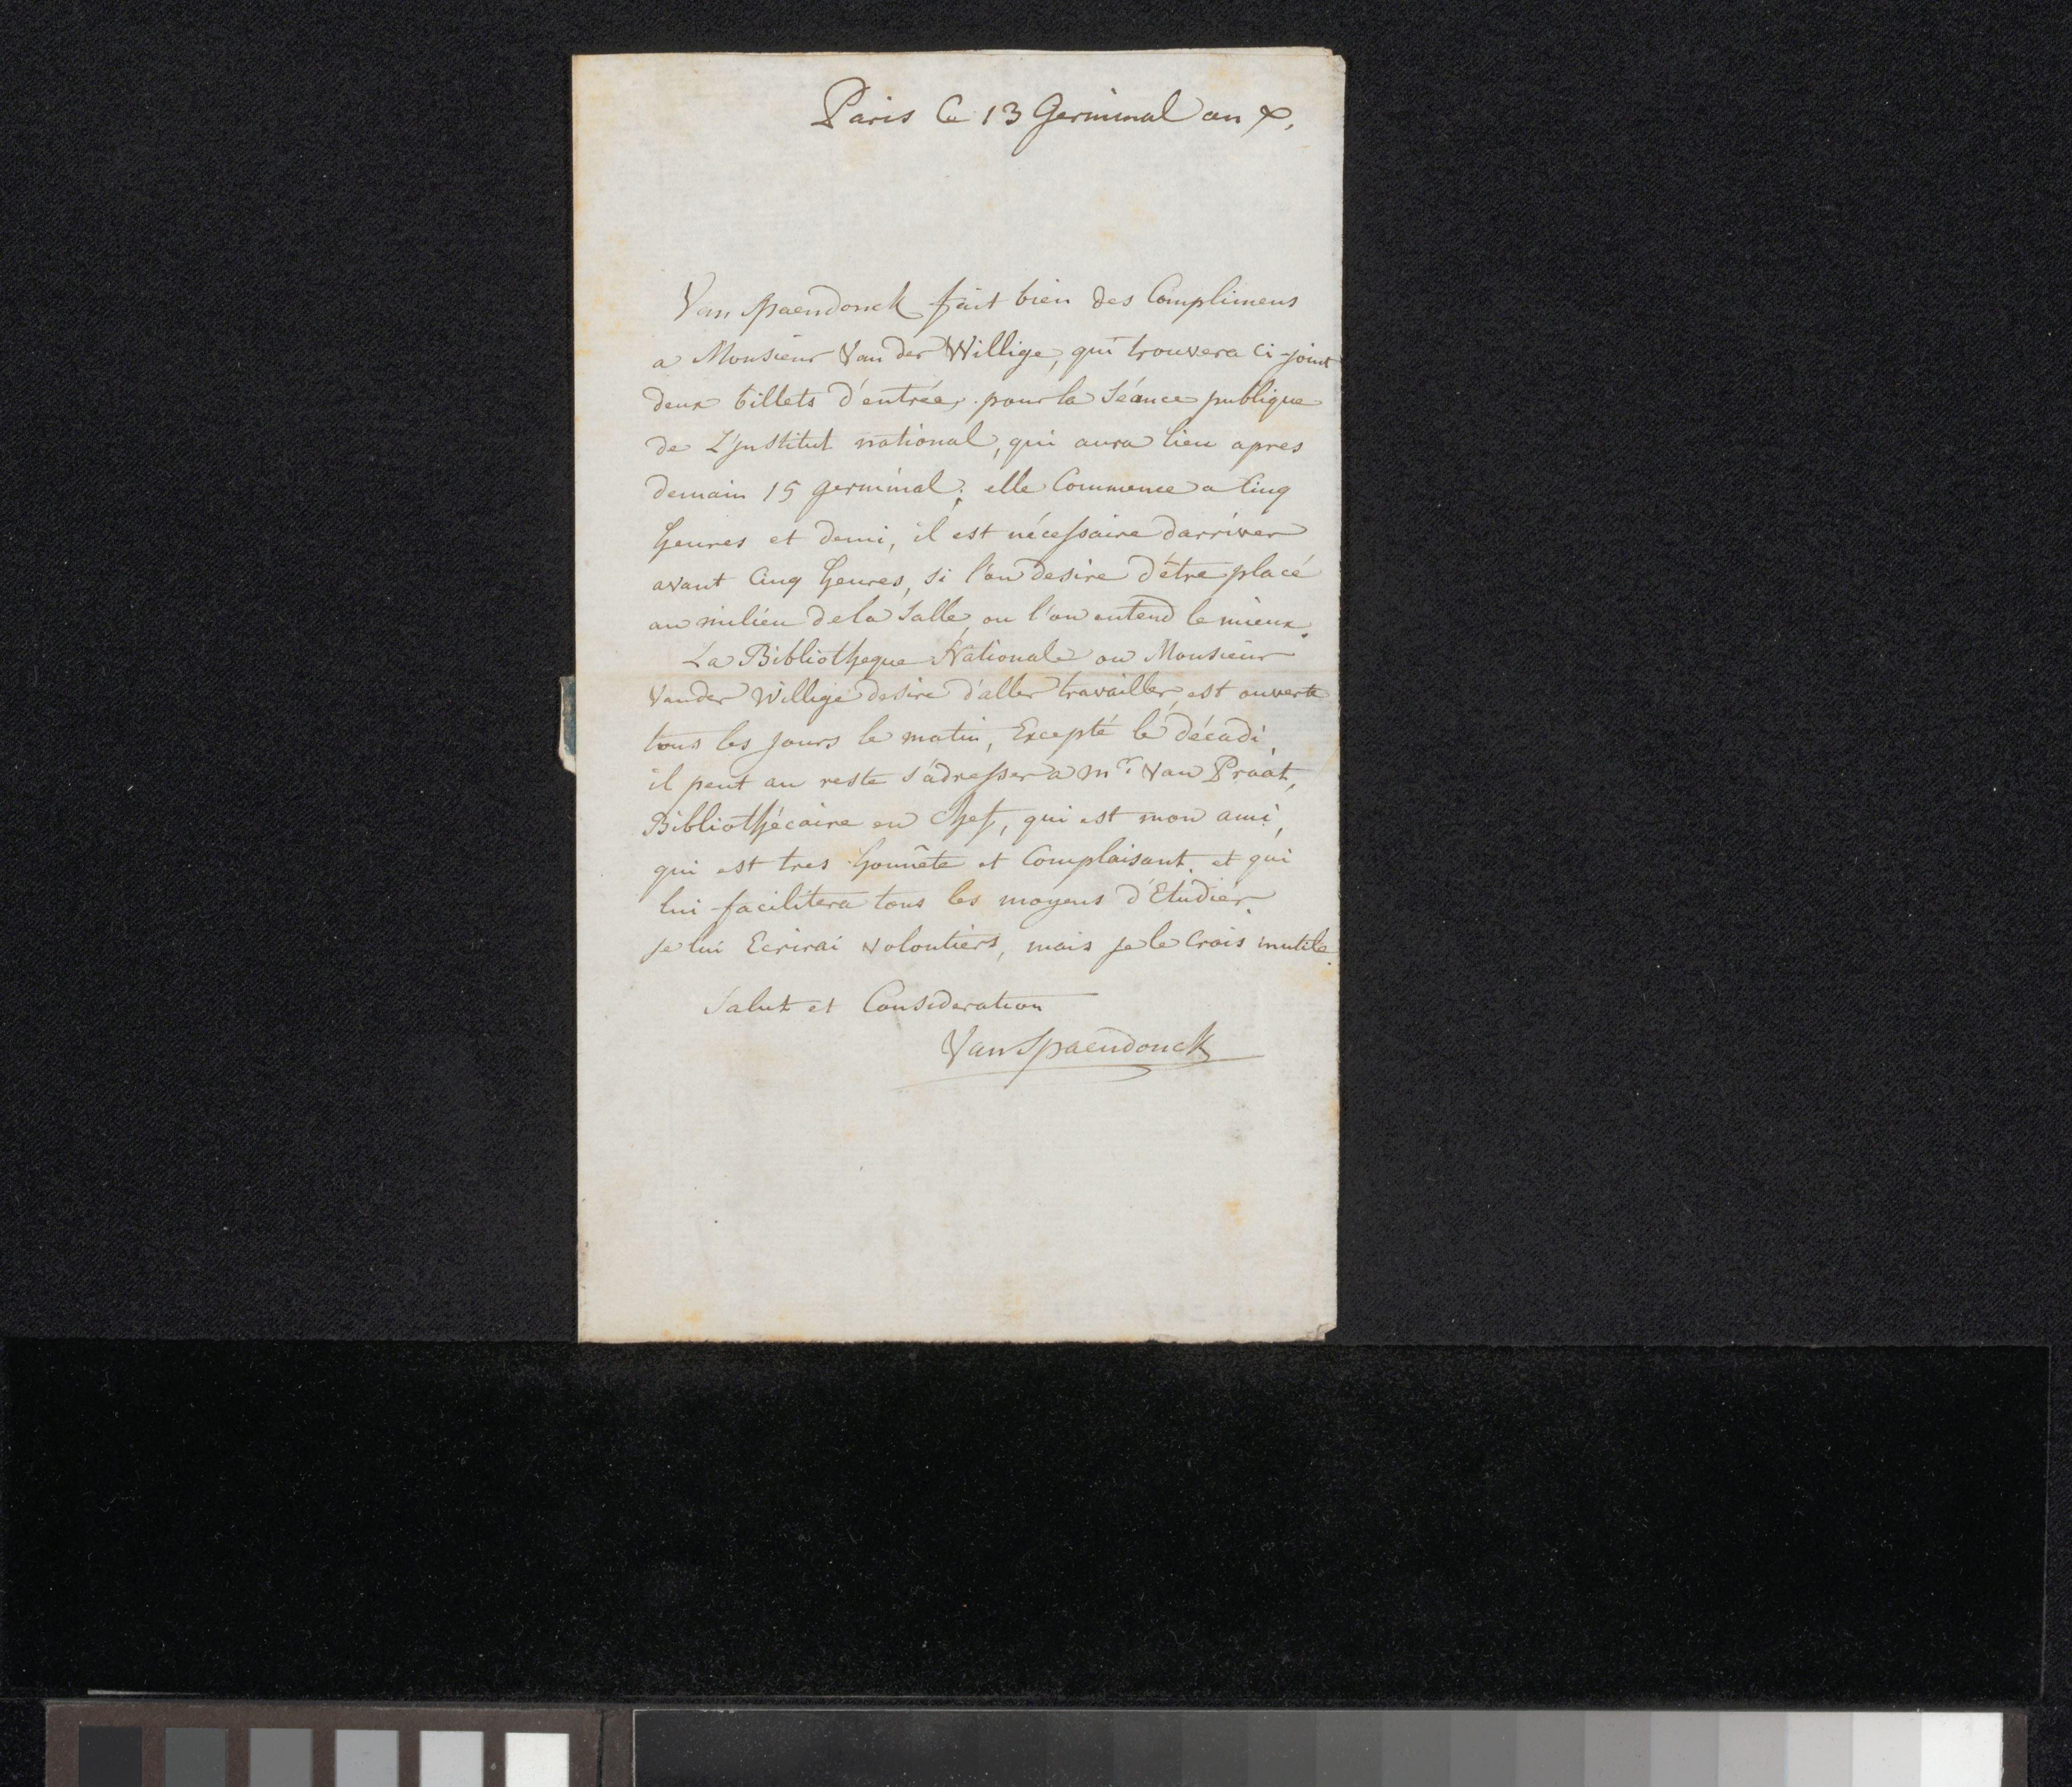 Paris Ce 13 Germinal an X.
Van Spaendonck fait bien des Complimens
a Monsieur Van der Willige, qui trouvera ci-joint
deux billets d'entrée, pour la Séance publique
de L'institut national, qui aura lieu apres
demain 15 germinal; elle Commence a Cinq
heures et demi, il est nécessaire darriver
avant Cinq heures, si l'on desire d'être placé
au milieu de la Salle, ou l'on entend le mieux.
La Bibliotheque Nationale ou Monsieur
Vander Willige desire d'aller travailler, est ouverte
tous les jours le matin, Excepté le décadi,
il peut au reste s'adresser a Mr. Van Praat,
Bibliothécaire en Chef, qui est mon ami,
qui est tres honnête et Complaisant, et qui
lui facilitera tous les moyens d'Etudier.
Je lui Ecrirai volontiers, mais je le Crois inutile.
Salut et Consideration
Van Spaendonck